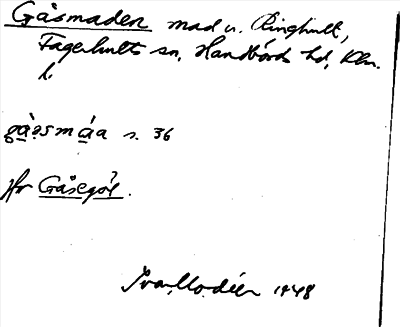 Gåsmaden mad u. Ringhult,
Fagerhults sn, Handbörds hd, Klm.
l.
gàəsmáa s. 36
Jfr Gåsegöl.
Ivar Modéer 1948